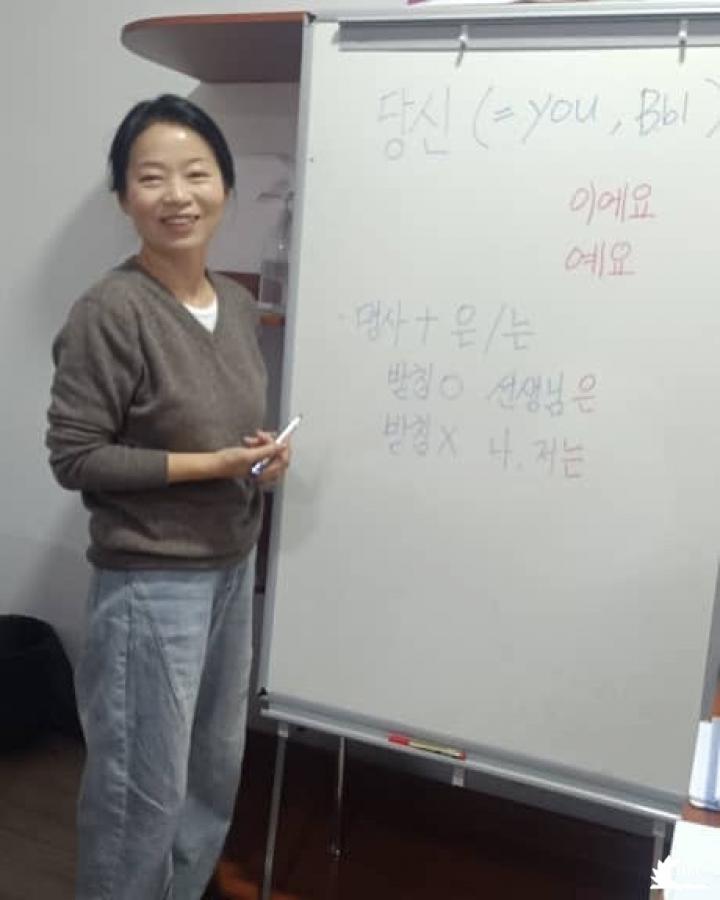 당신 (= you, Вы)
이에요
예요
· 명사 + 은/는
받침 O 선생님은
받침 X 나, 저는